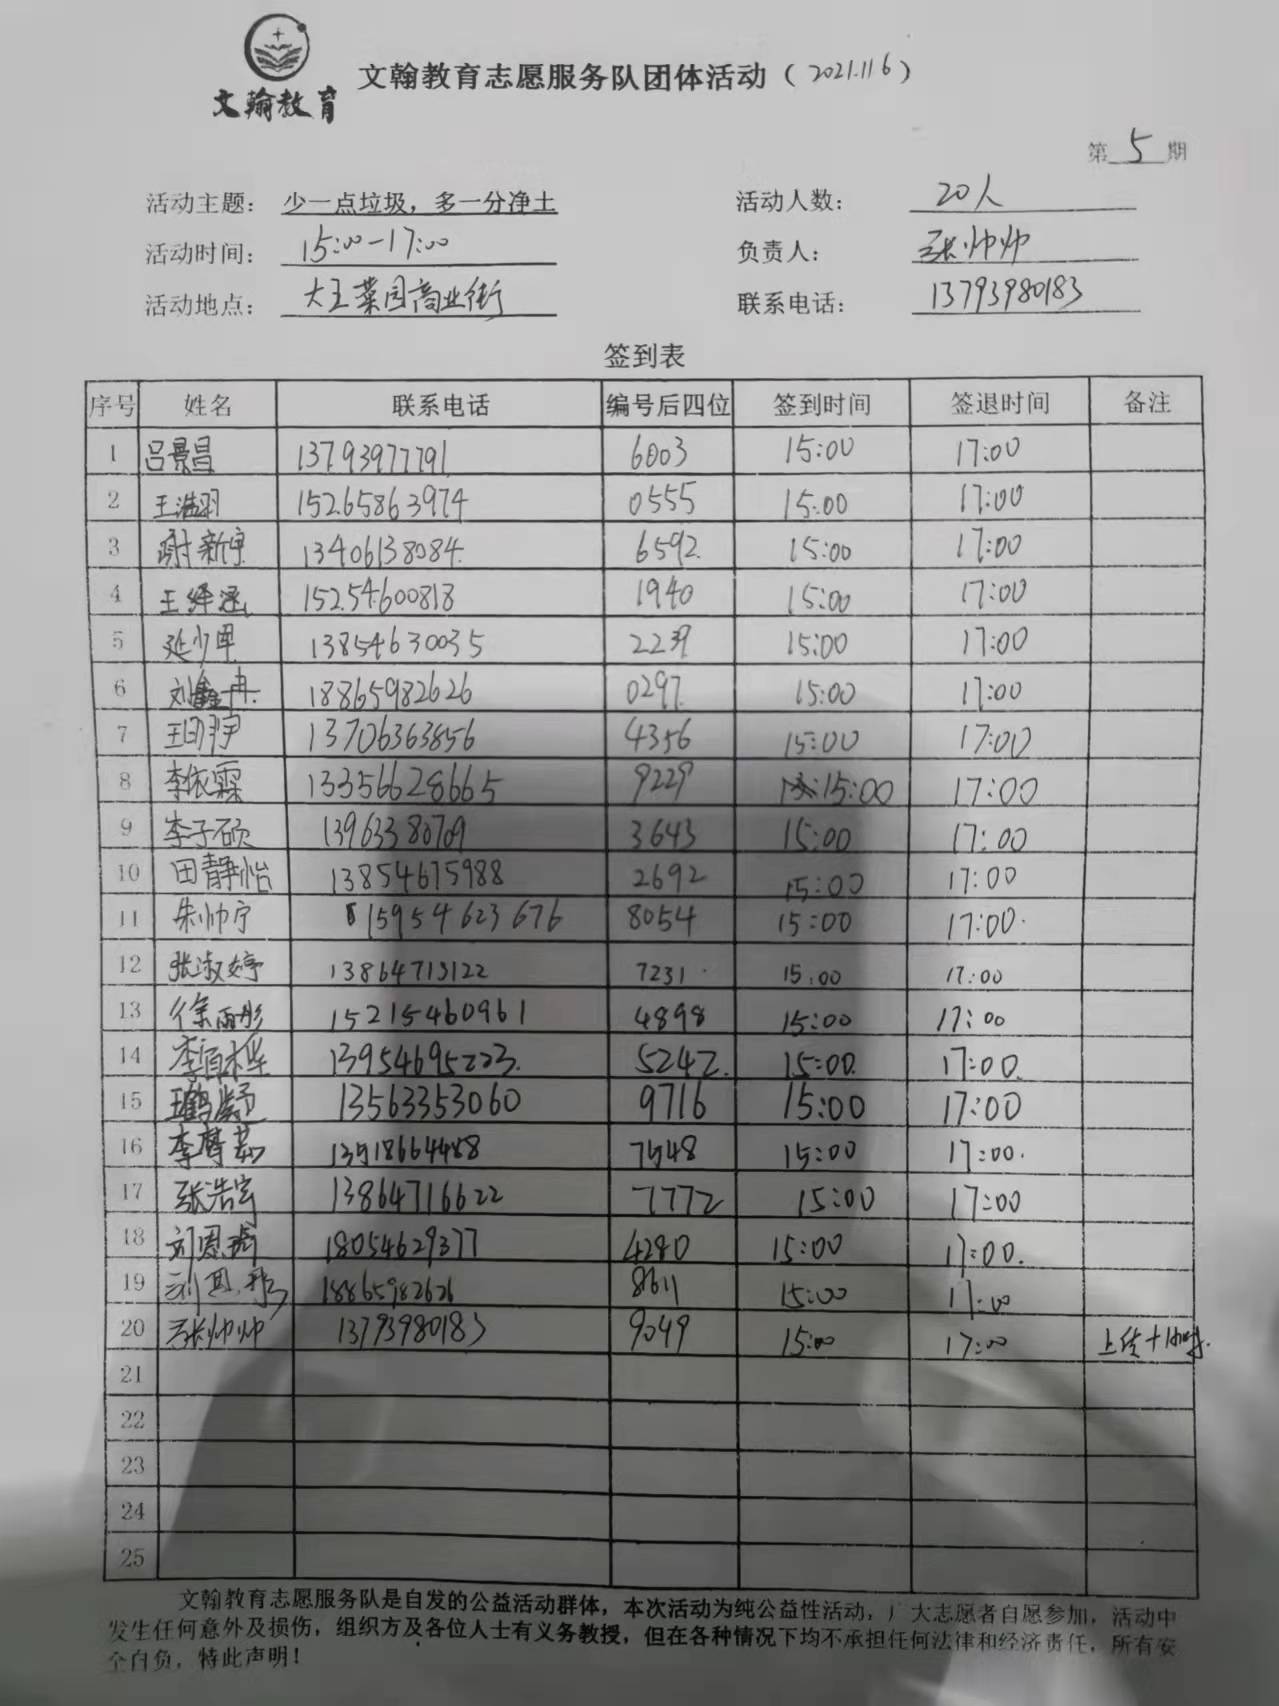 文翰教育
文翰教育志愿服务队团体活动（2021.11 6）
第 5 期
活动主题：少一点垃圾，多一分净土 活动人数：20人
活动时间：15:00-17:00 负责人：张帅帅
活动地点：大王菜园商业街 联系电话：13793980183
签到表
序号 姓名 联系电话 编号后四位 签到时间 签退时间 备注
1 吕景昌 13793977791 6003 15:00 17:00
2 王浩羽 15265863974 0555 15:00 17:00
3 谢新宇 13406138084 6592 15:00 17:00
4 王绎涵 15254600818 1940 15:00 17:00
5 延少军 13854630035 2239 15:00 17:00
6 刘鑫冉 18865982626 0297 15:00 17:00
7 13706363856 4356 15:00 17:00
8 李依霖 13356628665 9229 15:00 17:00
9 李子硕 13963380709 3643 15:00 17:00
10 田静怡 13854675988 2692 15:00 17:00
11 朱帅宁 15954623676 8054 15:00 17:00
12 张淑婷 13864713122 7231 15:00 17:00
13 徐雨彤 15215460961 4898 15:00 17:00
14 13954695223 5242 15:00 17:00
15 13563353060 9716 15:00 17:00
16 李梦茹 7548 15:00 17:00
17 张浩宇 13864716622 7772 15:00 17:00
18 刘恩瑞 18054629377 4280 15:00 17:00
19 18865982626 8611 15:00 17:00
20 张帅帅 13793980183 9049 15:00 17:00 上传+1小时
21
22
23
24
25
文翰教育志愿服务队是自发的公益活动群体，本次活动为纯公益性活动，广大志愿者自愿参加，活动中
发生任何意外及损伤，组织方及各位人士有义务教授，但在各种情况下均不承担任何法律和经济责任，所有安
全自负，特此声明！